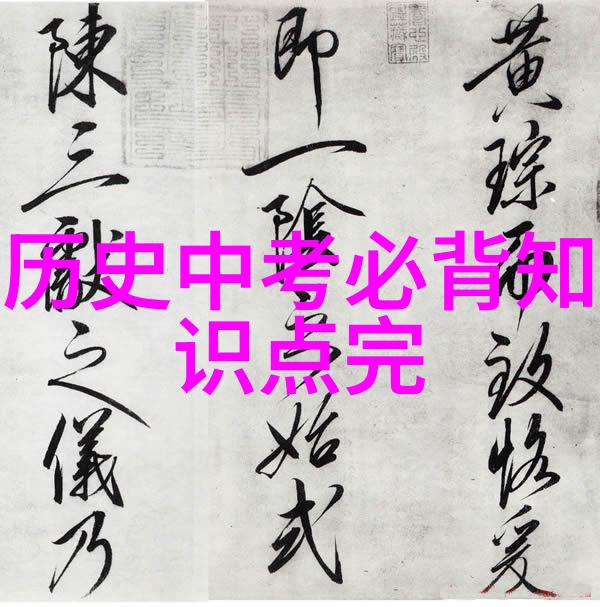 历史中考必背知
识点完
黄琮致恪爰
即一陰始式
陳三獻之儀乃